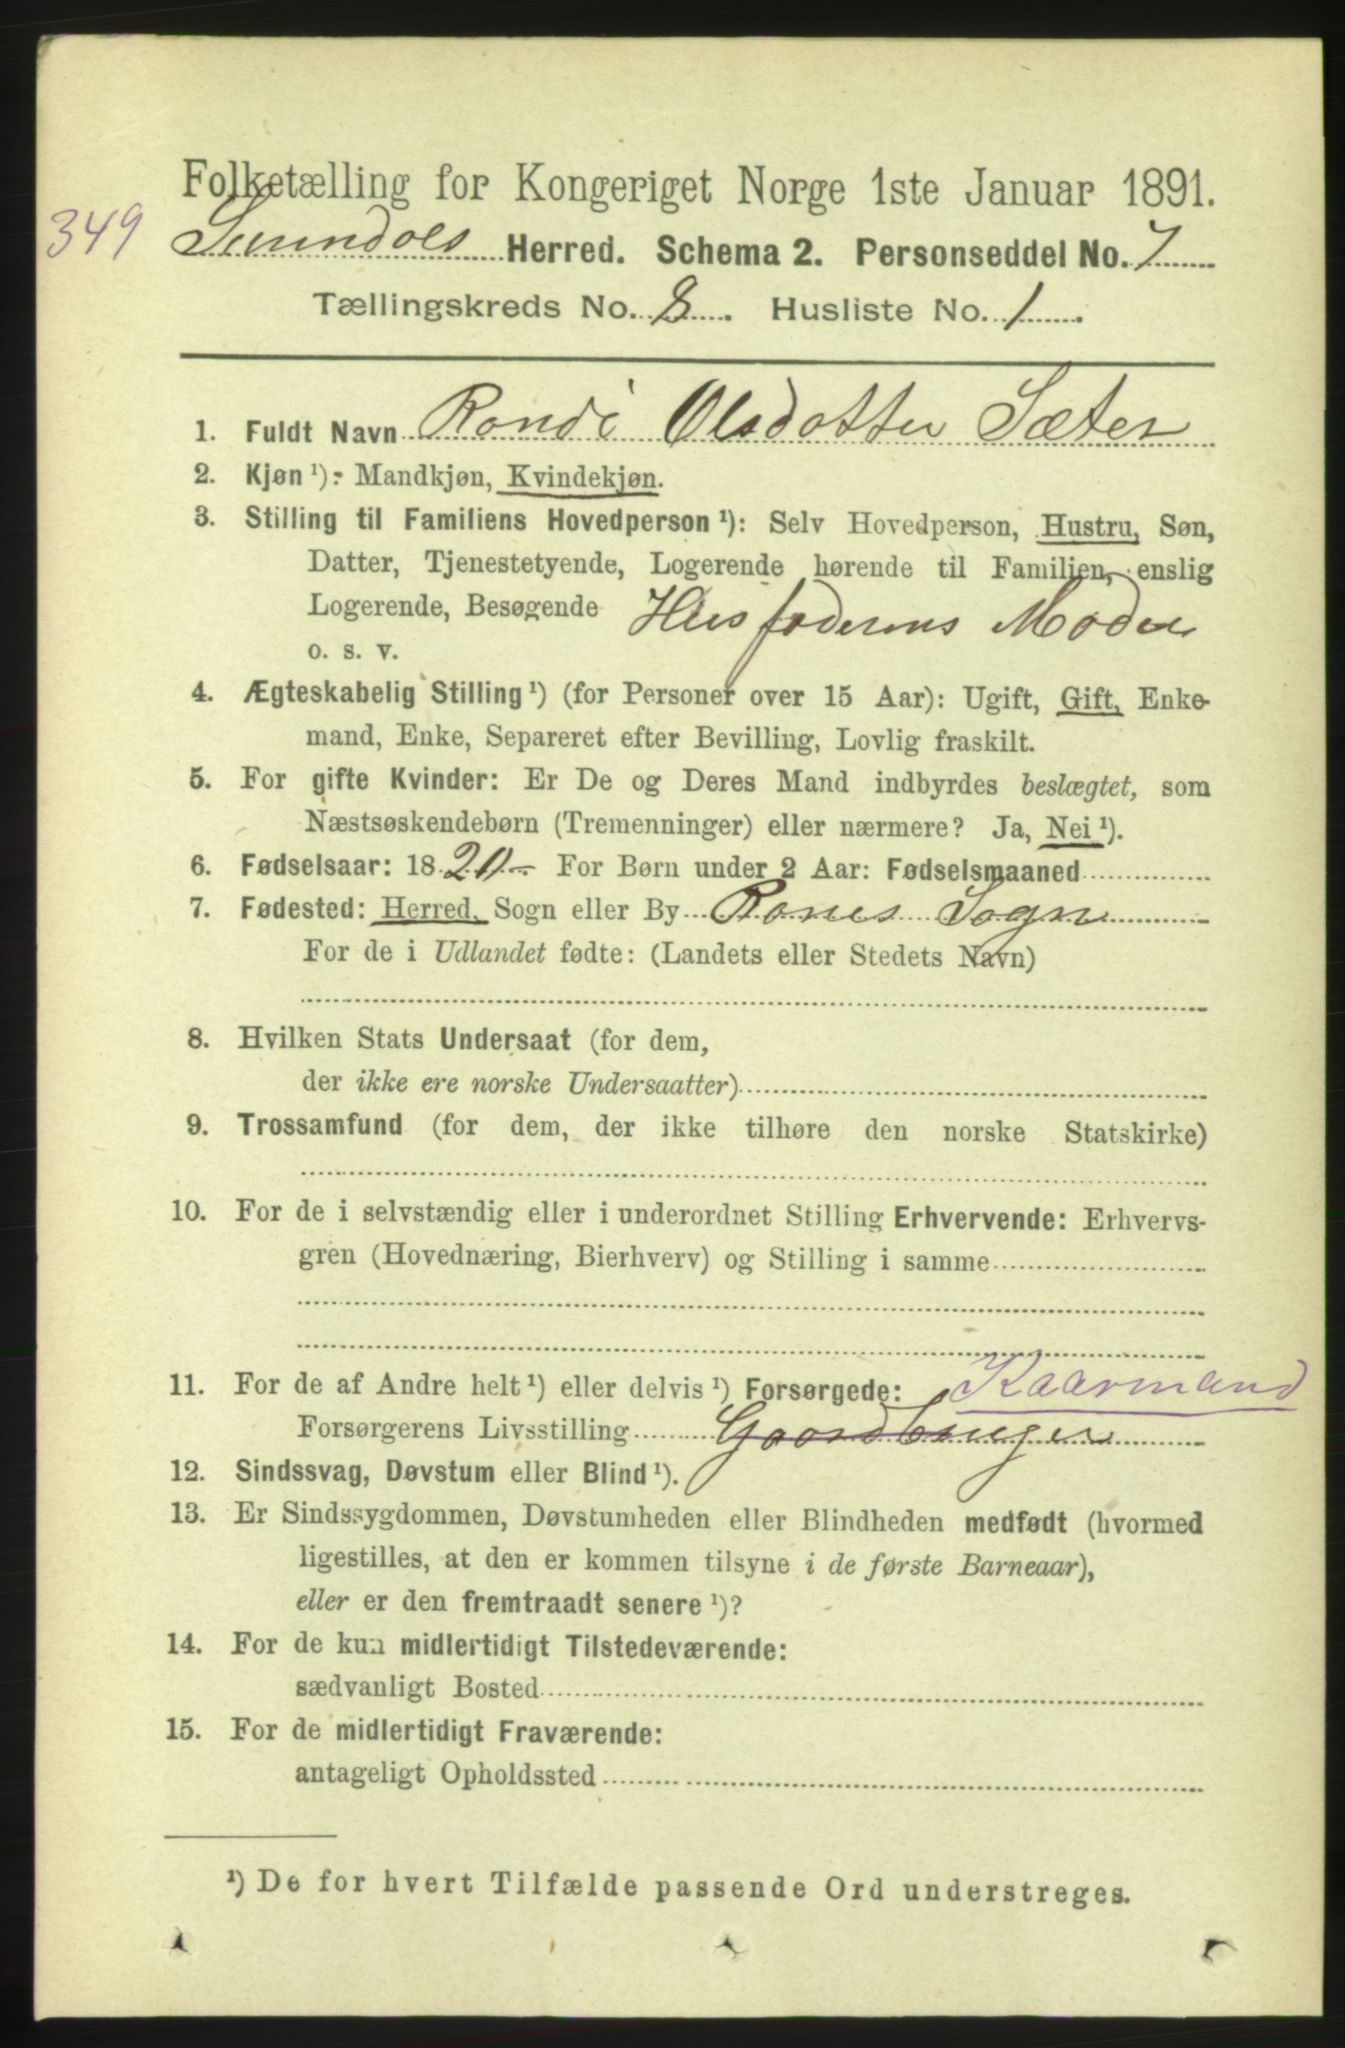 Folketælling for Kongeriget Norge 1ste Januar 1891.
349 Surendals Herred. Schema 2. Personseddel No. 7
Tællingskreds No. 8. Husliste No. 1.
1. Fuldt Navn Randi Olsdatter Sæter
2. Kjøn ¹): Mandkjøn, Kvindekjøn.
3. Stilling til Familiens Hovedperson ¹): Selv Hovedperson, Hustru, Søn,
Datter, Tjenestetyende, Logerende hørende til Familien, enslig
Logerende, Besøgende Husfaderens Moder
o. s. v.
4. Ægteskabelig Stilling ¹) (for Personer over 15 Aar): Ugift, Gift, Enke-
mand, Enke, Separeret efter Bevilling, Lovlig fraskilt.
5. For gifte Kvinder: Er De og Deres Mand indbyrdes beslægtet, som
Næstsøskendebørn (Tremenninger) eller nærmere? Ja, Nei ¹).
6. Fødselsaar: 1820 – For Børn under 2 Aar: Fødselsmaaned
7. Fødested: Herred, Sogn eller By Ranes Sogn
For de i Udlandet fødte: (Landets eller Stedets Navn)
8. Hvilken Stats Undersaat (for dem,
der ikke ere norske Undersaatter)
9. Trossamfund (for dem, der ikke tilhøre den norske Statskirke)
10. For de i selvstændig eller i underordnet Stilling Erhvervende: Erhvervs-
gren (Hovednæring, Bierhverv) og Stilling i samme
11. For de af Andre helt ¹) eller delvis ¹) Forsørgede: Kaarmand
Forsørgerens Livsstilling Gaardbruger
12. Sindssvag, Døvstum eller Blind ¹).
13. Er Sindssygdommen, Døvstumheden eller Blindheden medfødt (hvormed
ligestilles, at den er kommen tilsyne i de første Barneaar),
eller er den fremtraadt senere ¹)?
14. For de kun midlertidigt Tilstedeværende:
sædvanligt Bosted
15. For de midlertidigt Fraværende:
antageligt Opholdssted
¹) De for hvert Tilfælde passende Ord understreges.